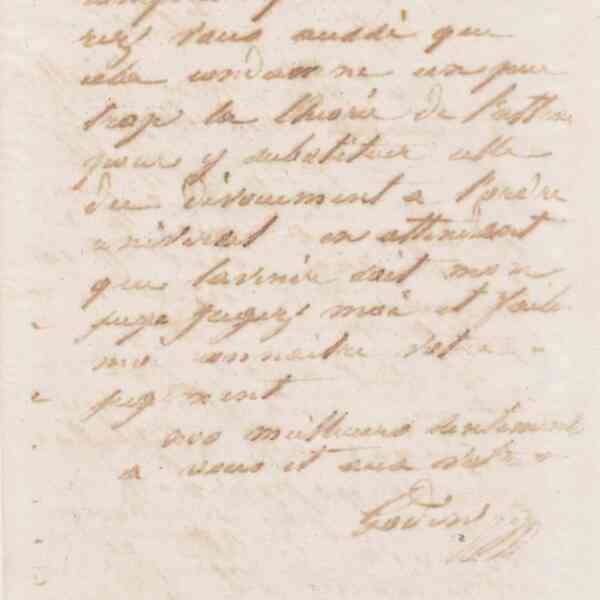 rez vous aussi que
cela condamne un peu
trop la théorie de l'attrac
pour y substituer celle
du dévouement a l'ordre
universel en attendant
que l'avenir soit mon
juge jugez moi et faite
moi connaitre votre
jugement
mes meilleurs sentiments
a vous et aux votres
Godin